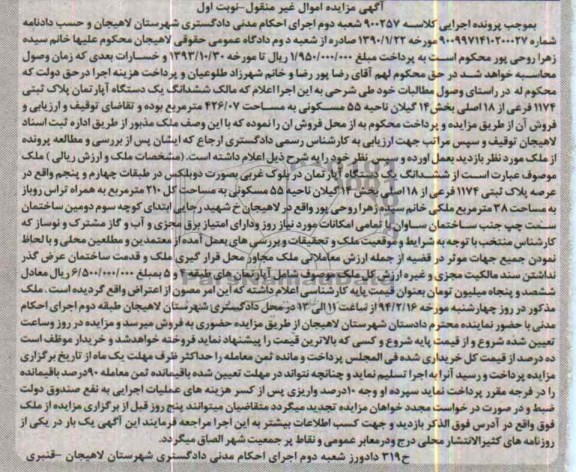 آگهی مزایده اموال غیر منقول-نوبت اول
بموجب پرونده اجرایی کلاسه ۹۰۰۲۵۷ شعبه دوم اجرای احکام مدنی دادگستری شهرستان لاهیجان و حسب دادنامه
شماره ۹۰۰۹۹۷۱۴۱۰۲۰۰۰۲۷ مورخه ۱۳۹۰/۱/۲۲ صادره از شعبه دوم دادگاه عمومی حقوقی لاهیجان محکوم علیها خانم سیده
زهرا روحی پور محکوم است به پرداخت مبلغ ۱/۹۵۰/۰۰۰/۰۰۰ ریال تا مورخه ۱۳۹۳/۱۰/۳۰ و خسارات بعدی که زمان وصول
محاسبه خواهد شد در حق محکوم لهم آقای رضا پور رضا و خانم شهرزاد طلوعیان و پرداخت هزینه اجرا درحق دولت که
محکوم له در راستای وصول مطالبات خود طی شرحی به این اجرا اعلام که مالک ششدانگ یک دستگاه آپارتمان پلاک ثبتی
۱۱۷۴ فرعی از ۱۸ اصلی بخش ۱۴ گیلان ناحیه ۵۵ مسکونی به مساحت ۴۲۶/۰۷ مترمربع بوده و تقاضای توقیف و ارزیابی و
فروش آن از طریق مزایده و پرداخت محکوم به از محل فروش ان را نموده که با این وصف ملک مذبور از طریق اداره ثبت اسناد
لاهیجان توقیف و سپس مراتب جهت ارزیابی به کارشناس رسمی دادگستری ارجاع که ایشان پس از بررسی و مطالعه پرونده
از ملک مورد نظر بازدید بعمل اورده و سپس نظر خود را به شرح ذیل اعلام داشته است.(مشخصات ملک و ارزش ریالی ) ملک
موصوف عبارت است از ششدانگ یک دستگاه آپارتمان در بلوک غربی بصورت دوبلکس در طبقات چهارم و پنجم واقع در
عرصه پلاک ثبتی ۱۱۷۴ فرعی از ۱۱۸اصلی بخش ۱۴ گیلان ناحیه ۵۵ مسکونی به مساحت کل ۲۱۰ مترمربع به همراه تراس روباز
به مساحت ۳۸ مترمربع ملکی خانم سیده زهرا روحی پور واقع در لاهیجان خ شهید رجایی ابتدای کوچه سوم دومین ساختمان
سمت چپ جنب ساختمان ساوان با تمامی امکانات مورد نیاز روز ودارای امتیاز برق مجزی و آب و گاز مشترک و نوساز که
کارشناس منتخب با توجه به شرایط و موقعیت ملک و تحقیقات و بررسی های بعمل آمده از معتمدین و مطلعین محلی و با لحاظ
نمودن جمیع جهات موثر در قضیه از جمله ارزش معاملاتی ملک مجاور محل قرار گیری ملک و قدمت ساختمان عرض گذر
نداشتن سند مالکیت مجزی و غیره ارزش کل ملک موصوف شامل آپارتمان های طبقه ۴ و ۵ بمبلغ ۶/۵۰۰/۰۰۰/۰۰۰ ریال معادل
ششصد و پنجاه میلیون تومان بعنوان قیمت پایه کارشناسی اعلام داشته که این امر مصون از اعتراض واقع گردیده است. ملک
مذکور در روز چهارشنبه مورخه ۹۴/۲/۱۶ از ساعت ۱۱ الی ۱۳ در محل دادگستری شهرستان لاهیجان طبقه دوم اجرای احکام
مدنی با حضور نماینده محترم دادستان شهرستان لاهیجان از طریق مزایده حضوری به فروش میرسد و مزایده در روز وساعت
تعیین شده شروع و از قیمت پایه شروع و کسی که بالاترین قیمت را پیشنهاد نماید فروخته خواهدشد و خریدار موظف است
ده درصد از قیمت کل خریداری شده فی المجلس پرداخت و مانده ثمن معامله را حداکثر ظرف مهلت یک ماه از تاریخ برگزاری
مزایده پرداخت و رسید آنرا به اجرا تسلیم نماید و چنانچه نتواند در مهلت تعیین شده باقیمانده ثمن معامله ۹۰درصد باقیمانده
را در فرجه مقرر پرداخت نماید سپرده او وجه ۱۰درصد واریزی پس از کسر هزینه های عملیات اجرایی به نفع صندوق دولت
ضبط و در صورت در خواست مجدد خواهان مزایده تجدید میگردد متقاضیان میتوانند پنج روز قبل از برگزاری مزایده از ملک
فوق واقع در آدرس فوق الذکر بازدید و جهت کسب اطلاعات بیشتر به این اجرا مراجعه فرمایند این آگهی یک بار در یکی از
روزنامه های کثیرالانتشار محلی درج ودرمعابر عمومی و نقاط پر جمعیت شهر الصاق میگردد.
ح۳۱۹ دادورز شعبه دوم اجرای احکام مدنی دادگستری شهرستان لاهیجان -قنبری